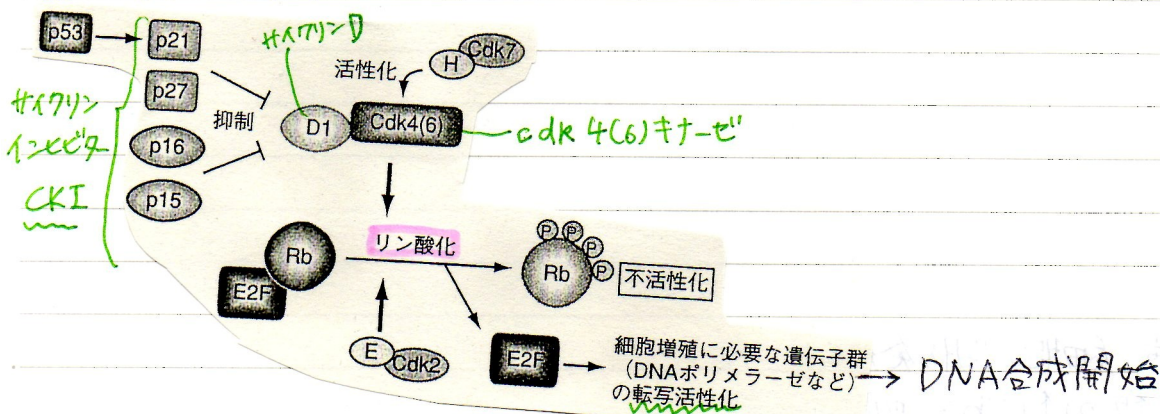 p53
p21
p27
p16
p15
サイクリン
インヒビター
CKI
抑制
サイクリンD
活性化
H
Cdk7
D1
Cdk4(6)
cdk 4(6)キナーゼ
リン酸化
Rb
E2F
E
Cdk2
P
P
P
P
Rb
不活性化
E2F
細胞増殖に必要な遺伝子群
(DNAポリメラーゼなど)
の転写活性化
DNA合成開始